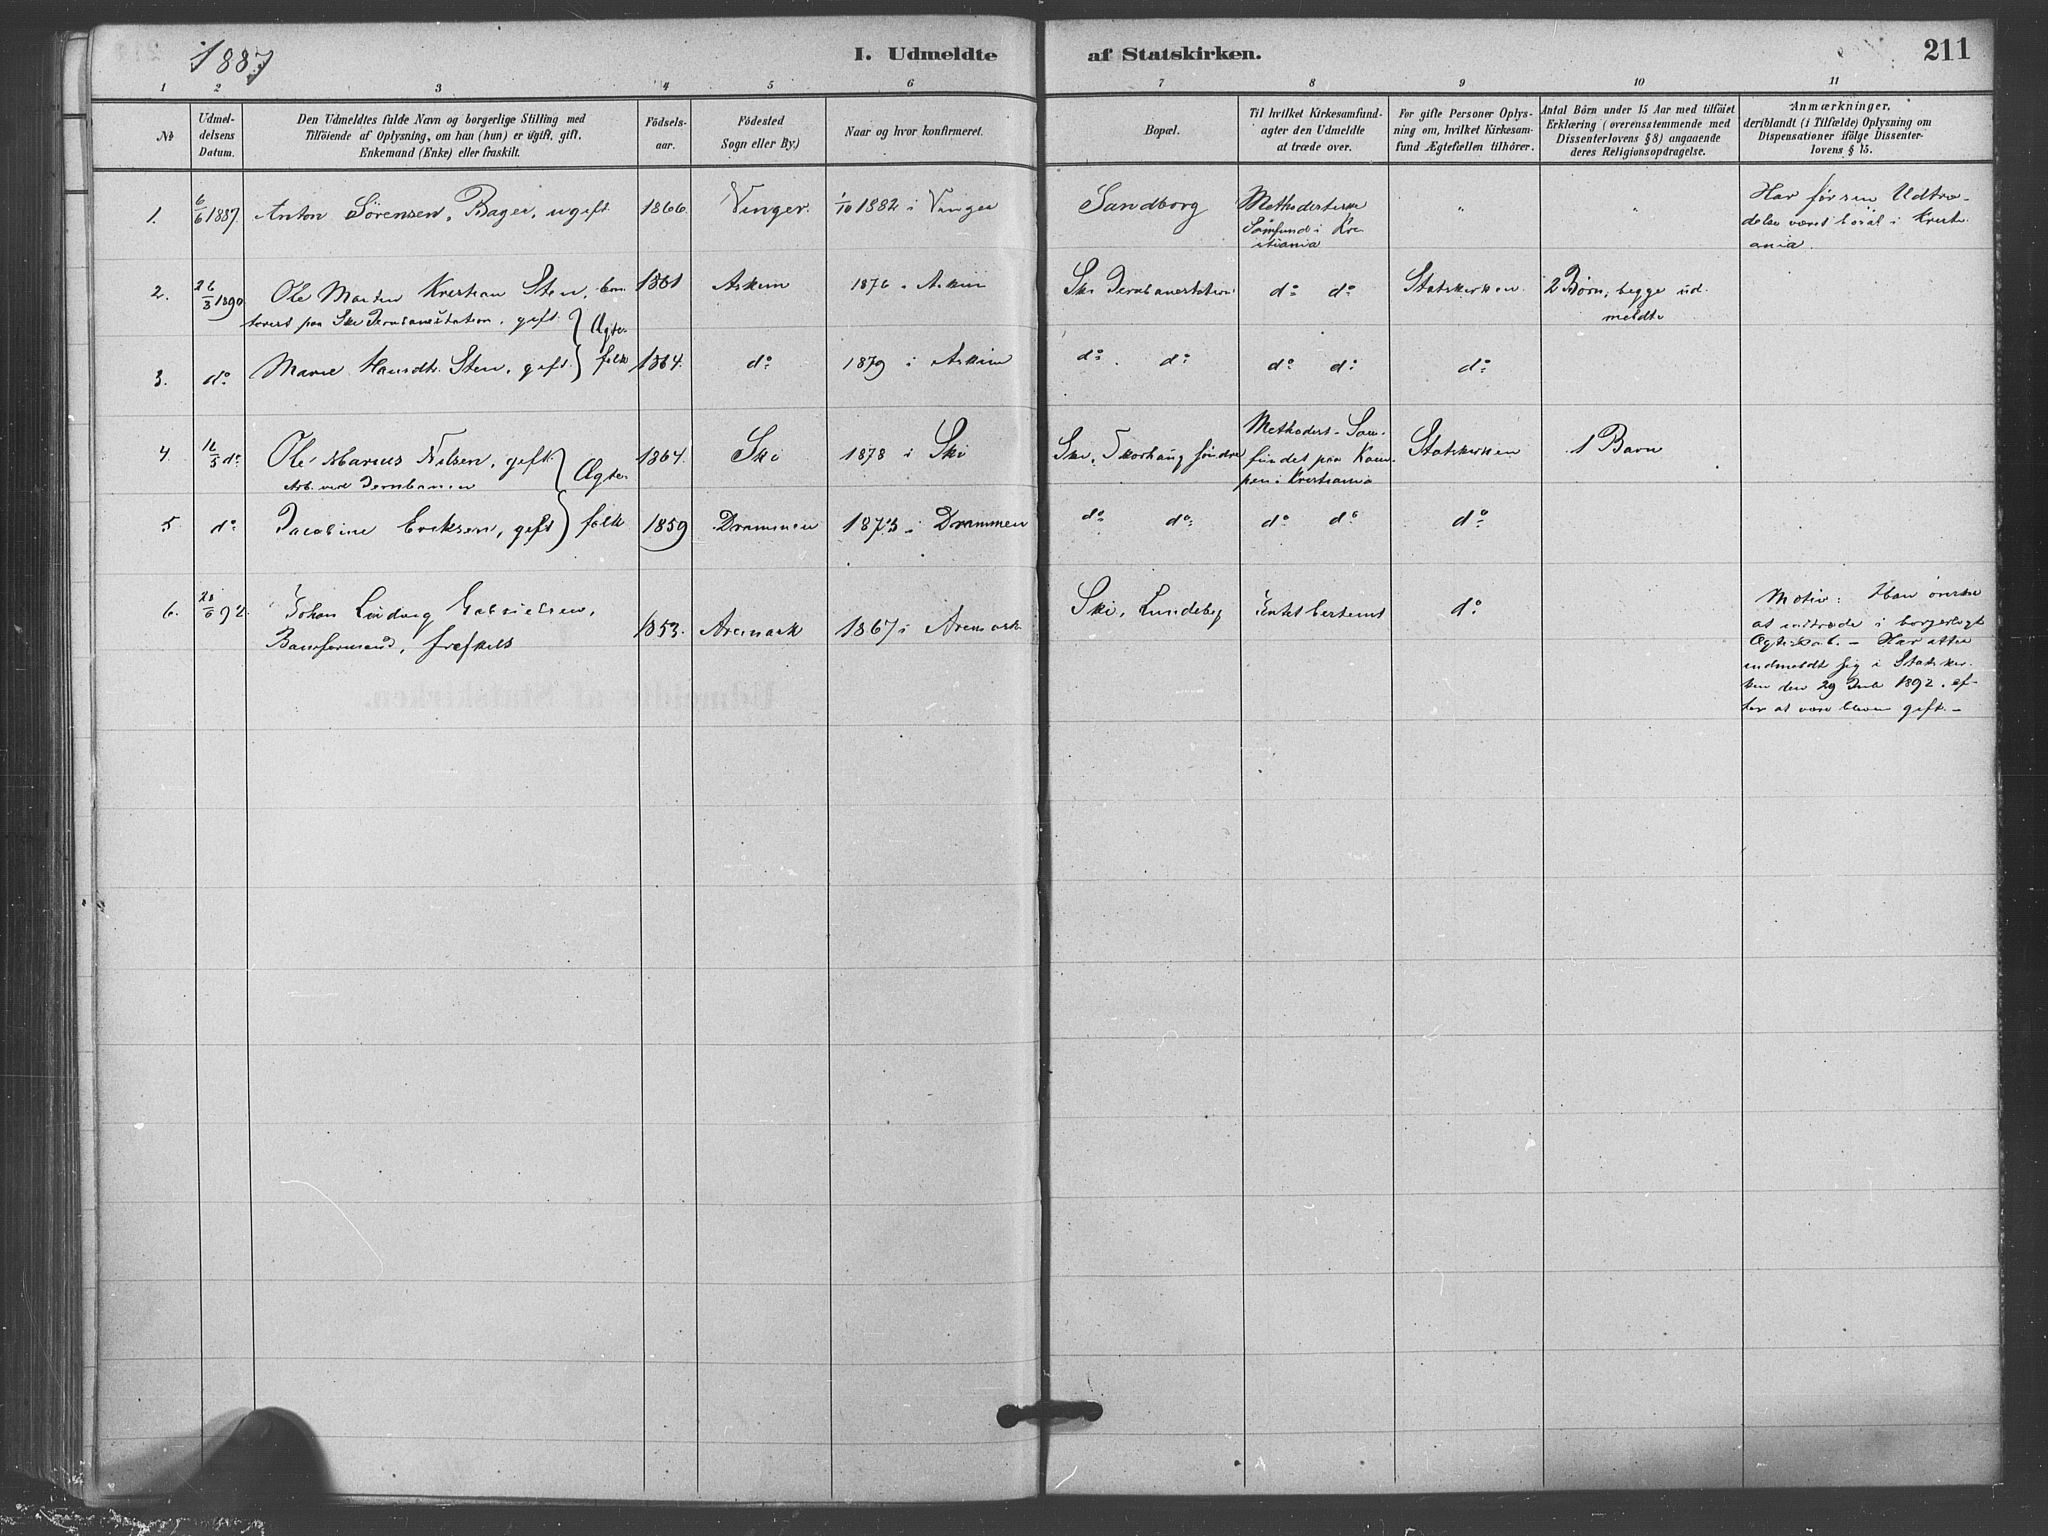 1887
I. Udmeldte af Statskirken.
211
1 2 3 4 5 6 7 8 9 10 11
№
Udmel-
delsens
Datum.
Den Udmeldtes fulde Navn og borgerlige Stilling med
Tilföiende af Oplysning, om han (hun) er ugift, gift,
Enkemand (Enke) eller fraskilt.
Födsels-
aar.
Födested
Sogn eller By.)
Naar og hvor konfirmeret.
Bopæl.
Til hvilket Kirkesamfund-
agter den Udmeldte
at træde over.
For gifte Personer Oplys-
ning om, hvilket Kirkesam-
fund Ægtefællen tilhörer.
Antal Börn under 15 Aar med tilföiet
Erklæring (overensstemmende med
Dissenterlovens § 8) angaaende
deres Religionsopdragelse.
Anmærkninger,
deriblandt (i Tilfælde) Oplysning om
Dispensationer ifölge Dissenter-
lovens § 15.
1. 6/6 1887 Anton Sörensen, Bager, ugift. 1866. Vinger. 1/10 1882 i Vinger
Sandborg
Methodisterne
Samfund i Kri-
stiania
" "
Har før sin Udtræ-
delse været bosat i Kristi-
ania.
2. 26/3 1890 Ole Martin Kristian Sten,
paa Ski Jernbanestation, gift. 1861 Askim 1876 i Askim
Ski Jernbanestation
do do
Statskirken
2 Børn, begge ud-
meldte
Ægte-
folk
3. do Marie Hansdtr. Sten, gift. 1864. do 1879 i Askim
do do do do do
4. 16/5 do Ole Marius Nilsen, gift.
Arb. ved Jernbanen
Ægte-
folk
1864. Ski 1878 i Ski
Ski, Skorhaug søndre
Methodist-Sam-
fundet paa Kam-
pen i Kristiania
Statskirken
1 Barn
5. do Jacobine Eriksen, gift 1859 Drammen 1873 i Drammen
do do do do do
6. 92. Johan Ludvig Gabrielsen,
fraskilt 1853. Aremark 1867 i Aremark.
Ski, Lundeby Intet bestemt do
Motiv: Han ønsker
at indtræde i borgerligt
Ægteskab. – Har atter
indmeldt sig i Statskir-
ken den 29 Juli 1892, ef-
ter at være bleven gift. –